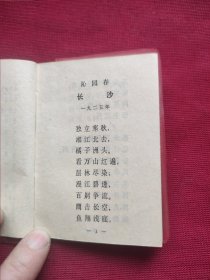 沁园春
长沙
一九二五年
独立寒秋，
湘江北去，
橘子洲头。
看万山红遍，
层林尽染；
漫江碧透，
百舸争流。
鹰击长空，
鱼翔浅底，
— 1 —